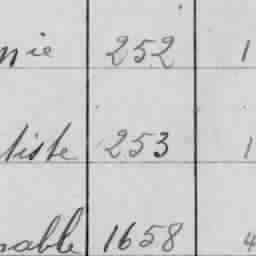 nie 252 1
tiste 253 1
sable 1658 4